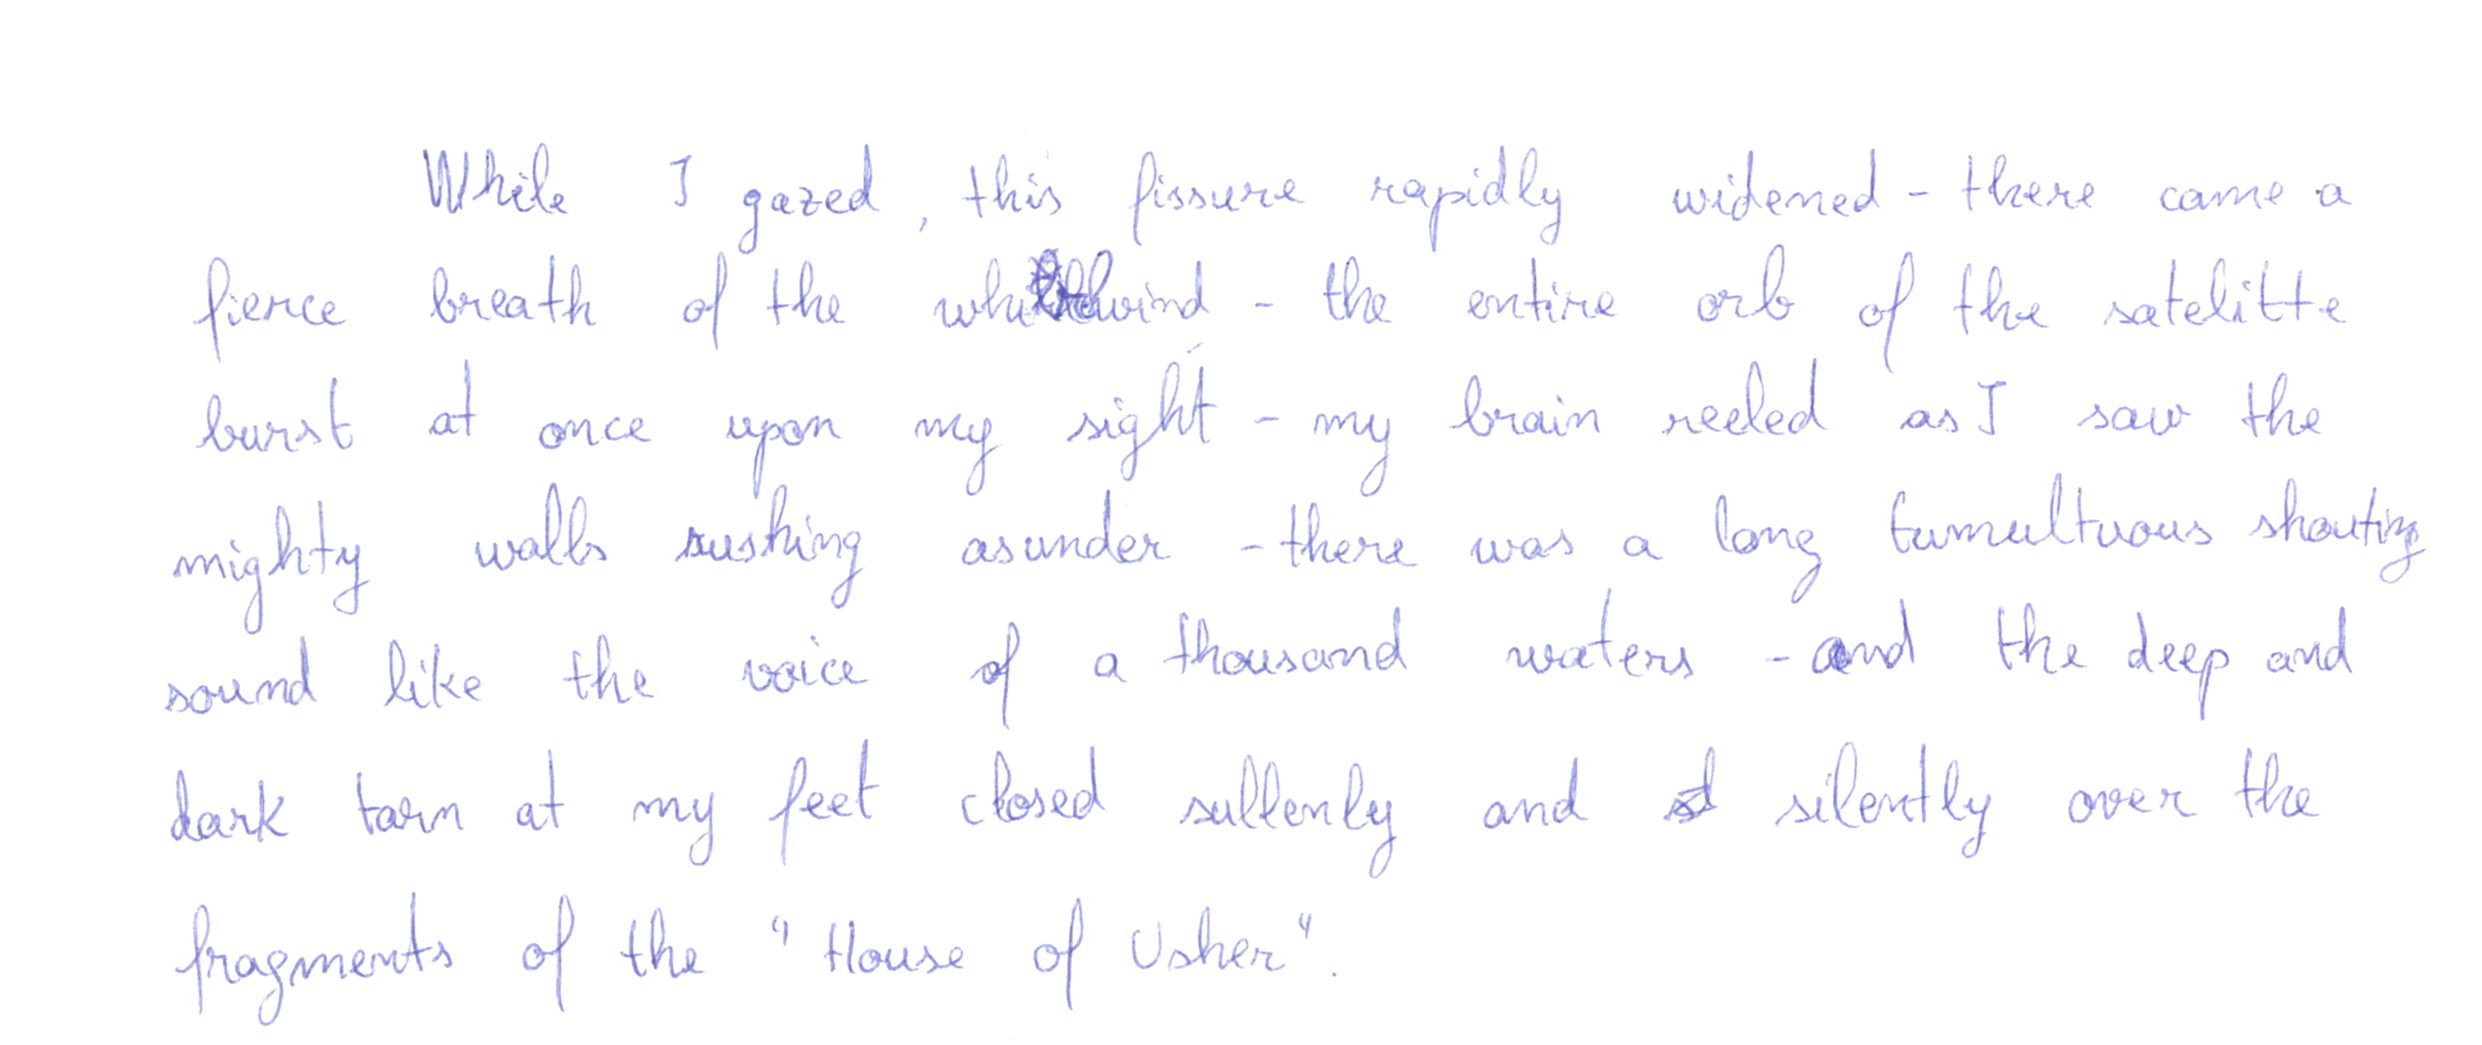 While I gazed, this fissure rapidly widened - there came a
fierce breath of the whirlwind - the entire orb of the satelitte
burst at once upon my sight - my brain reeled as I saw the
mighty walls rushing asunder - there was a long tumultuous shouting
sound like the voice of a thousand waters - and the deep and
dark tarn at my feet closed sullenly and silently over the
fragments of the "House of Usher".